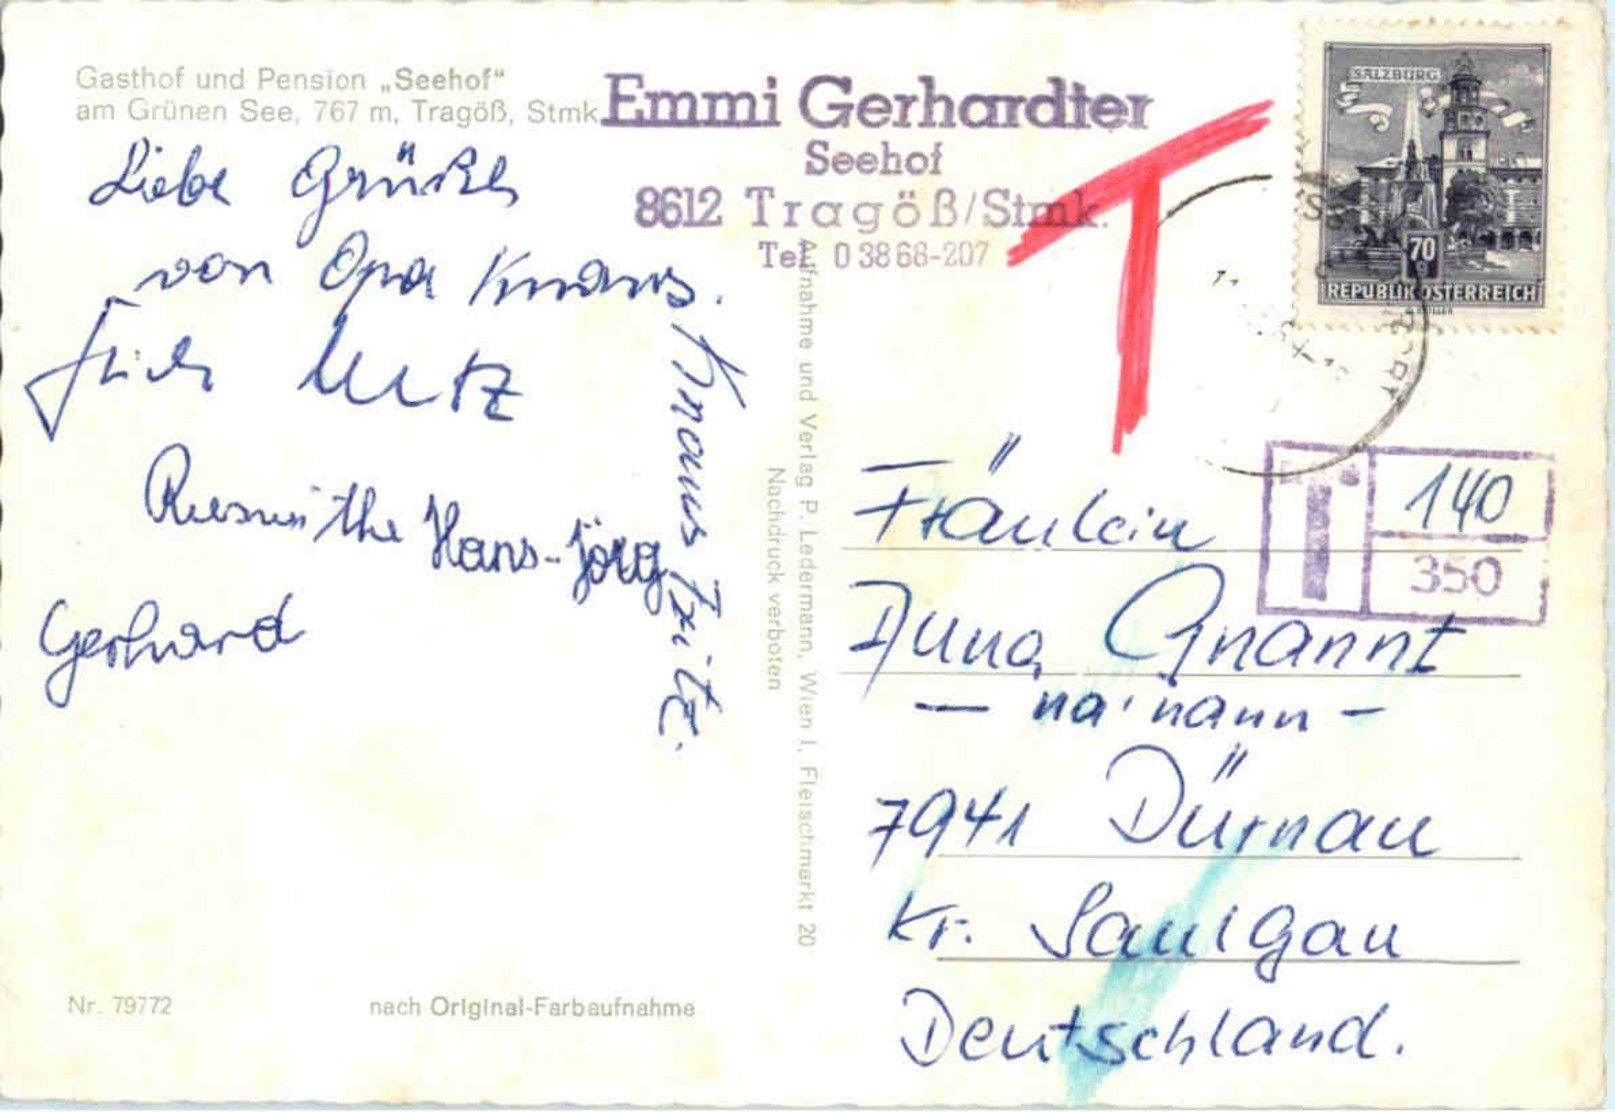 Gasthof und Pension „Seehof“
am Grünen See, 767 m, Tragöß, Stmk.
Emmi Gerhardter
Seehof
8612 Tragöß/Stmk.
Tel. 0 38 68-207
T
SALZBURG
70
g
REPUBLIK ÖSTERREICH
Liebe Grüße
von Opa Knaus.
Hans-Jörg
Gerhard
Knaus Fritz.
Aufnahme und Verlag P. Ledermann, Wien I. Fleischmarkt 20
Nachdruck verboten
T
140
350
Fräulein
Gnannt
7941 Dürnau
Kr. Saulgau
Deutschland.
Nr. 79772
nach Original-Farbaufnahme